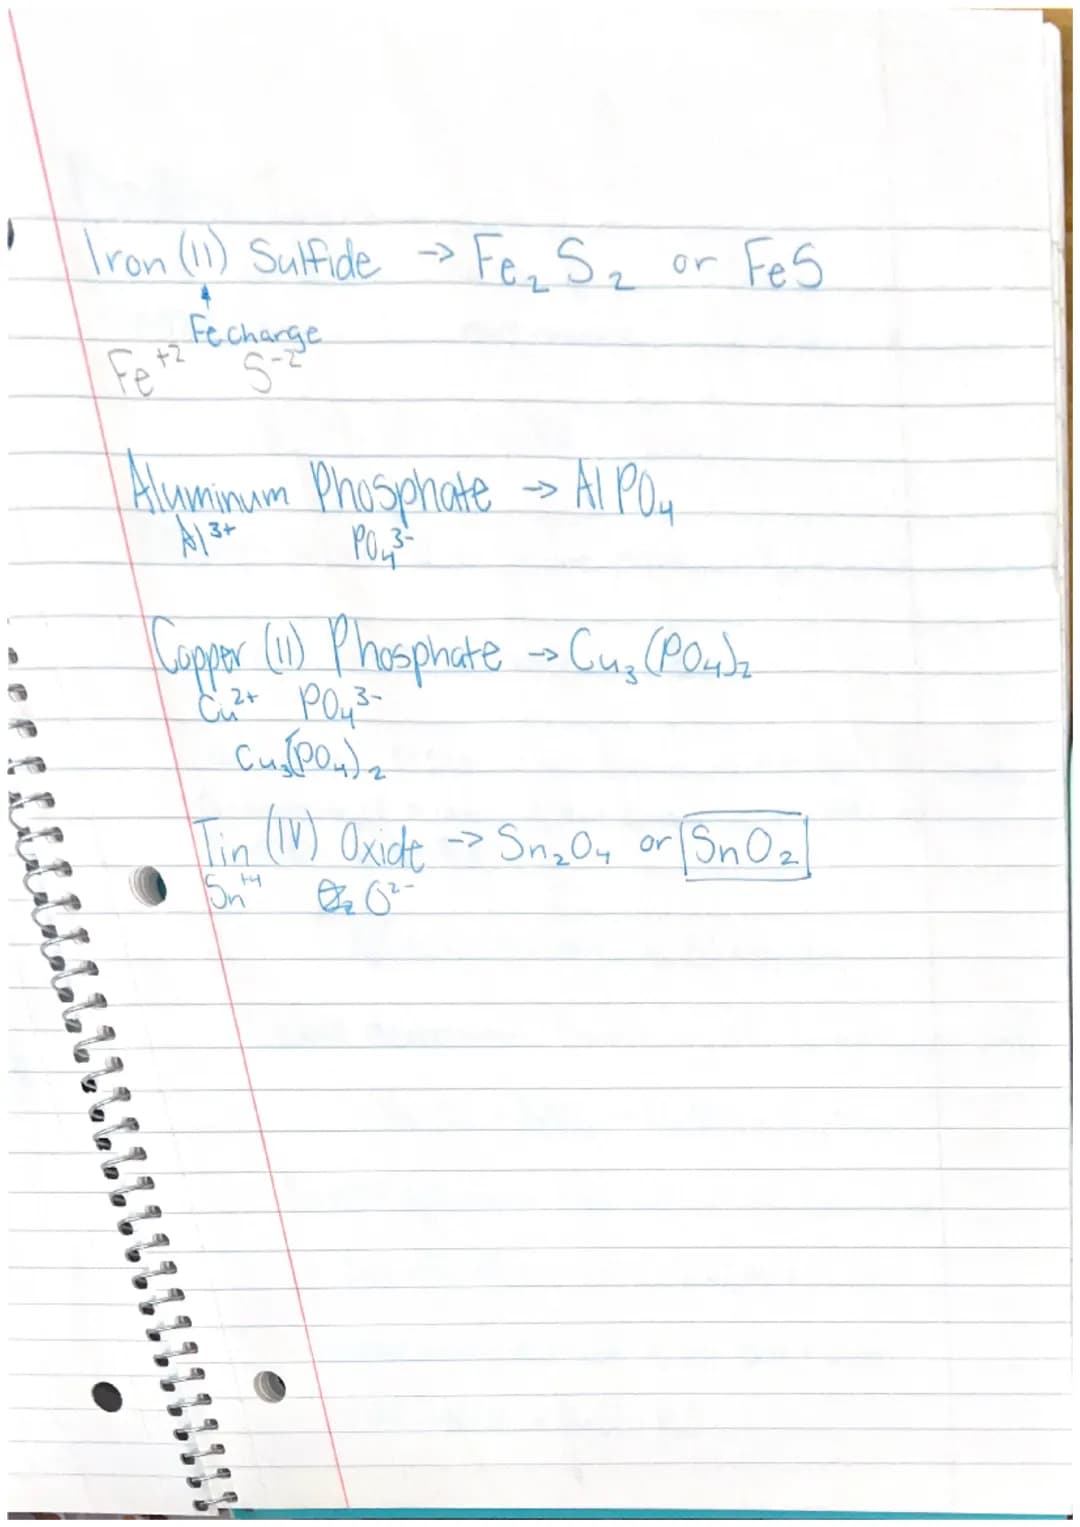 Iron (II) Sulfide → Fe₂S₂ or FeS
↑
Fe charge
Fe⁺² S⁻²
Aluminum Phosphate → AlPO₄
Al³⁺ PO₄³⁻
Copper (II) Phosphate → Cu₃(PO₄)₂
Cu²⁺ PO₄³⁻
Cu₃(PO₄)₂
Tin (IV) Oxide → Sn₂O₄ or SnO₂
Sn⁺⁴ O²⁻